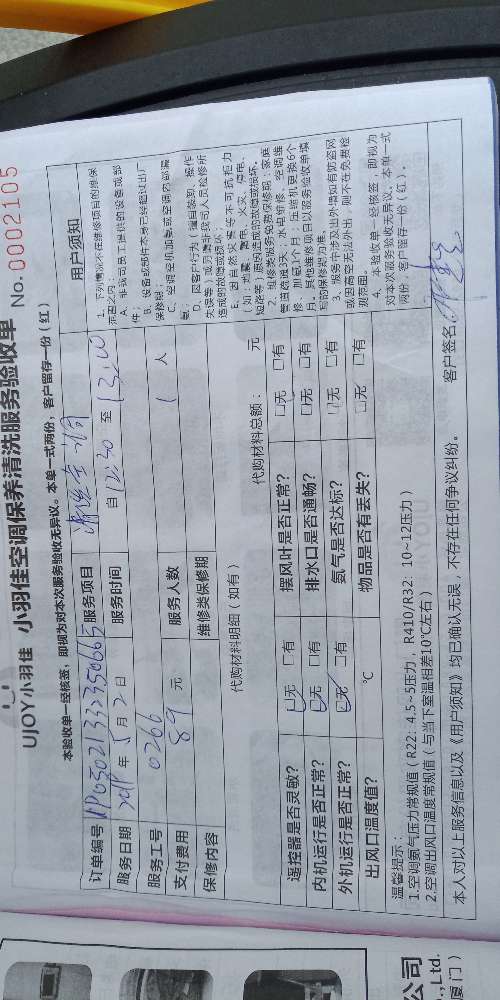 UJOY小羽佳 小羽佳空调保养清洗服务验收单 No. 0002105
本验收单一经核签，即视为对本次服务验收无异议。本单一式两份，客户留存一份（红）
订单编号 服务项目 清洗空调
服务日期 2019年5月2日 服务时间 自12:30至13:00
服务工号 0266
支付费用 89 元 服务人数 1 人
保修内容 维修类保修期
用户须知
1、下列情况不在维修项目的维保范围之内：
A、非我司员工提供的设备或部件；
B、设备或部件本身已经超过出厂保修期；
C、空调空机加氨或空调内部漏氨；
D、因客户行为（擅自装卸、操作失误等）或另请非我司人员检修所造成的故障或损坏；
E、因自然灾害等不可抗拒力（如：地震、雷电、火灾、停电、短路等）原因造成的故障或损坏。
2、维修类服务免费保修期：家庭管道疏通3天、水电维修、空调维修、加氨1个月；压缩机更换6个月，其他维修项目以服务验收单填写的保修期为准。
3、服务中涉及出外墙如有防盗网或因高空无法外出，则不在免费检测范围。
4、本验收单一经核签，即视为对本次服务验收无异议、本单一式两份，客户留存一份（红）。
代购材料明细（如有） 代购材料总额： 元
遥控器是否灵敏？ □无 □有 摆风叶是否正常？ □无 □有
内机运行是否正常？ □无 □有 排水口是否通畅？ □无 □有
外机运行是否正常？ □无 □有 氨气是否达标？ □无 □有
出风口温度值？ ℃ 物品是否有丢失？ □无 □有
温馨提示：
1.空调氨气压力常规值（R22：4.5~5压力，R410/R32：10~12压力）
2.空调出风口温度常规值（与当下室温相差10℃左右）
本人对以上服务信息以及《用户须知》均已确认无误，不存在任何争议纠纷。 客户签名：
公司
., Ltd.
厦门）